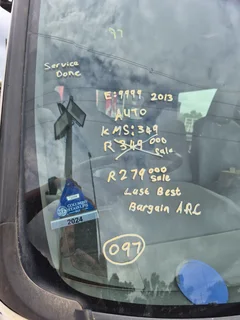 97
Service
Done
E:9999 2013
AUTO
KMS:349
R 349 000
Sale
R279 000
Sale
Last Best
Bargain A.R.C
2024
097